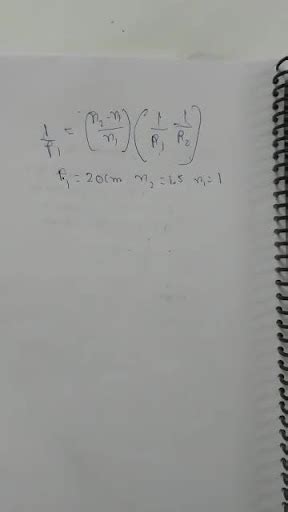 1/f₁ = (n₂-n₁/n₁) (1/R₁ - 1/R₂)
f₁ = 20cm n₂ = 1.5 n₁ = 1